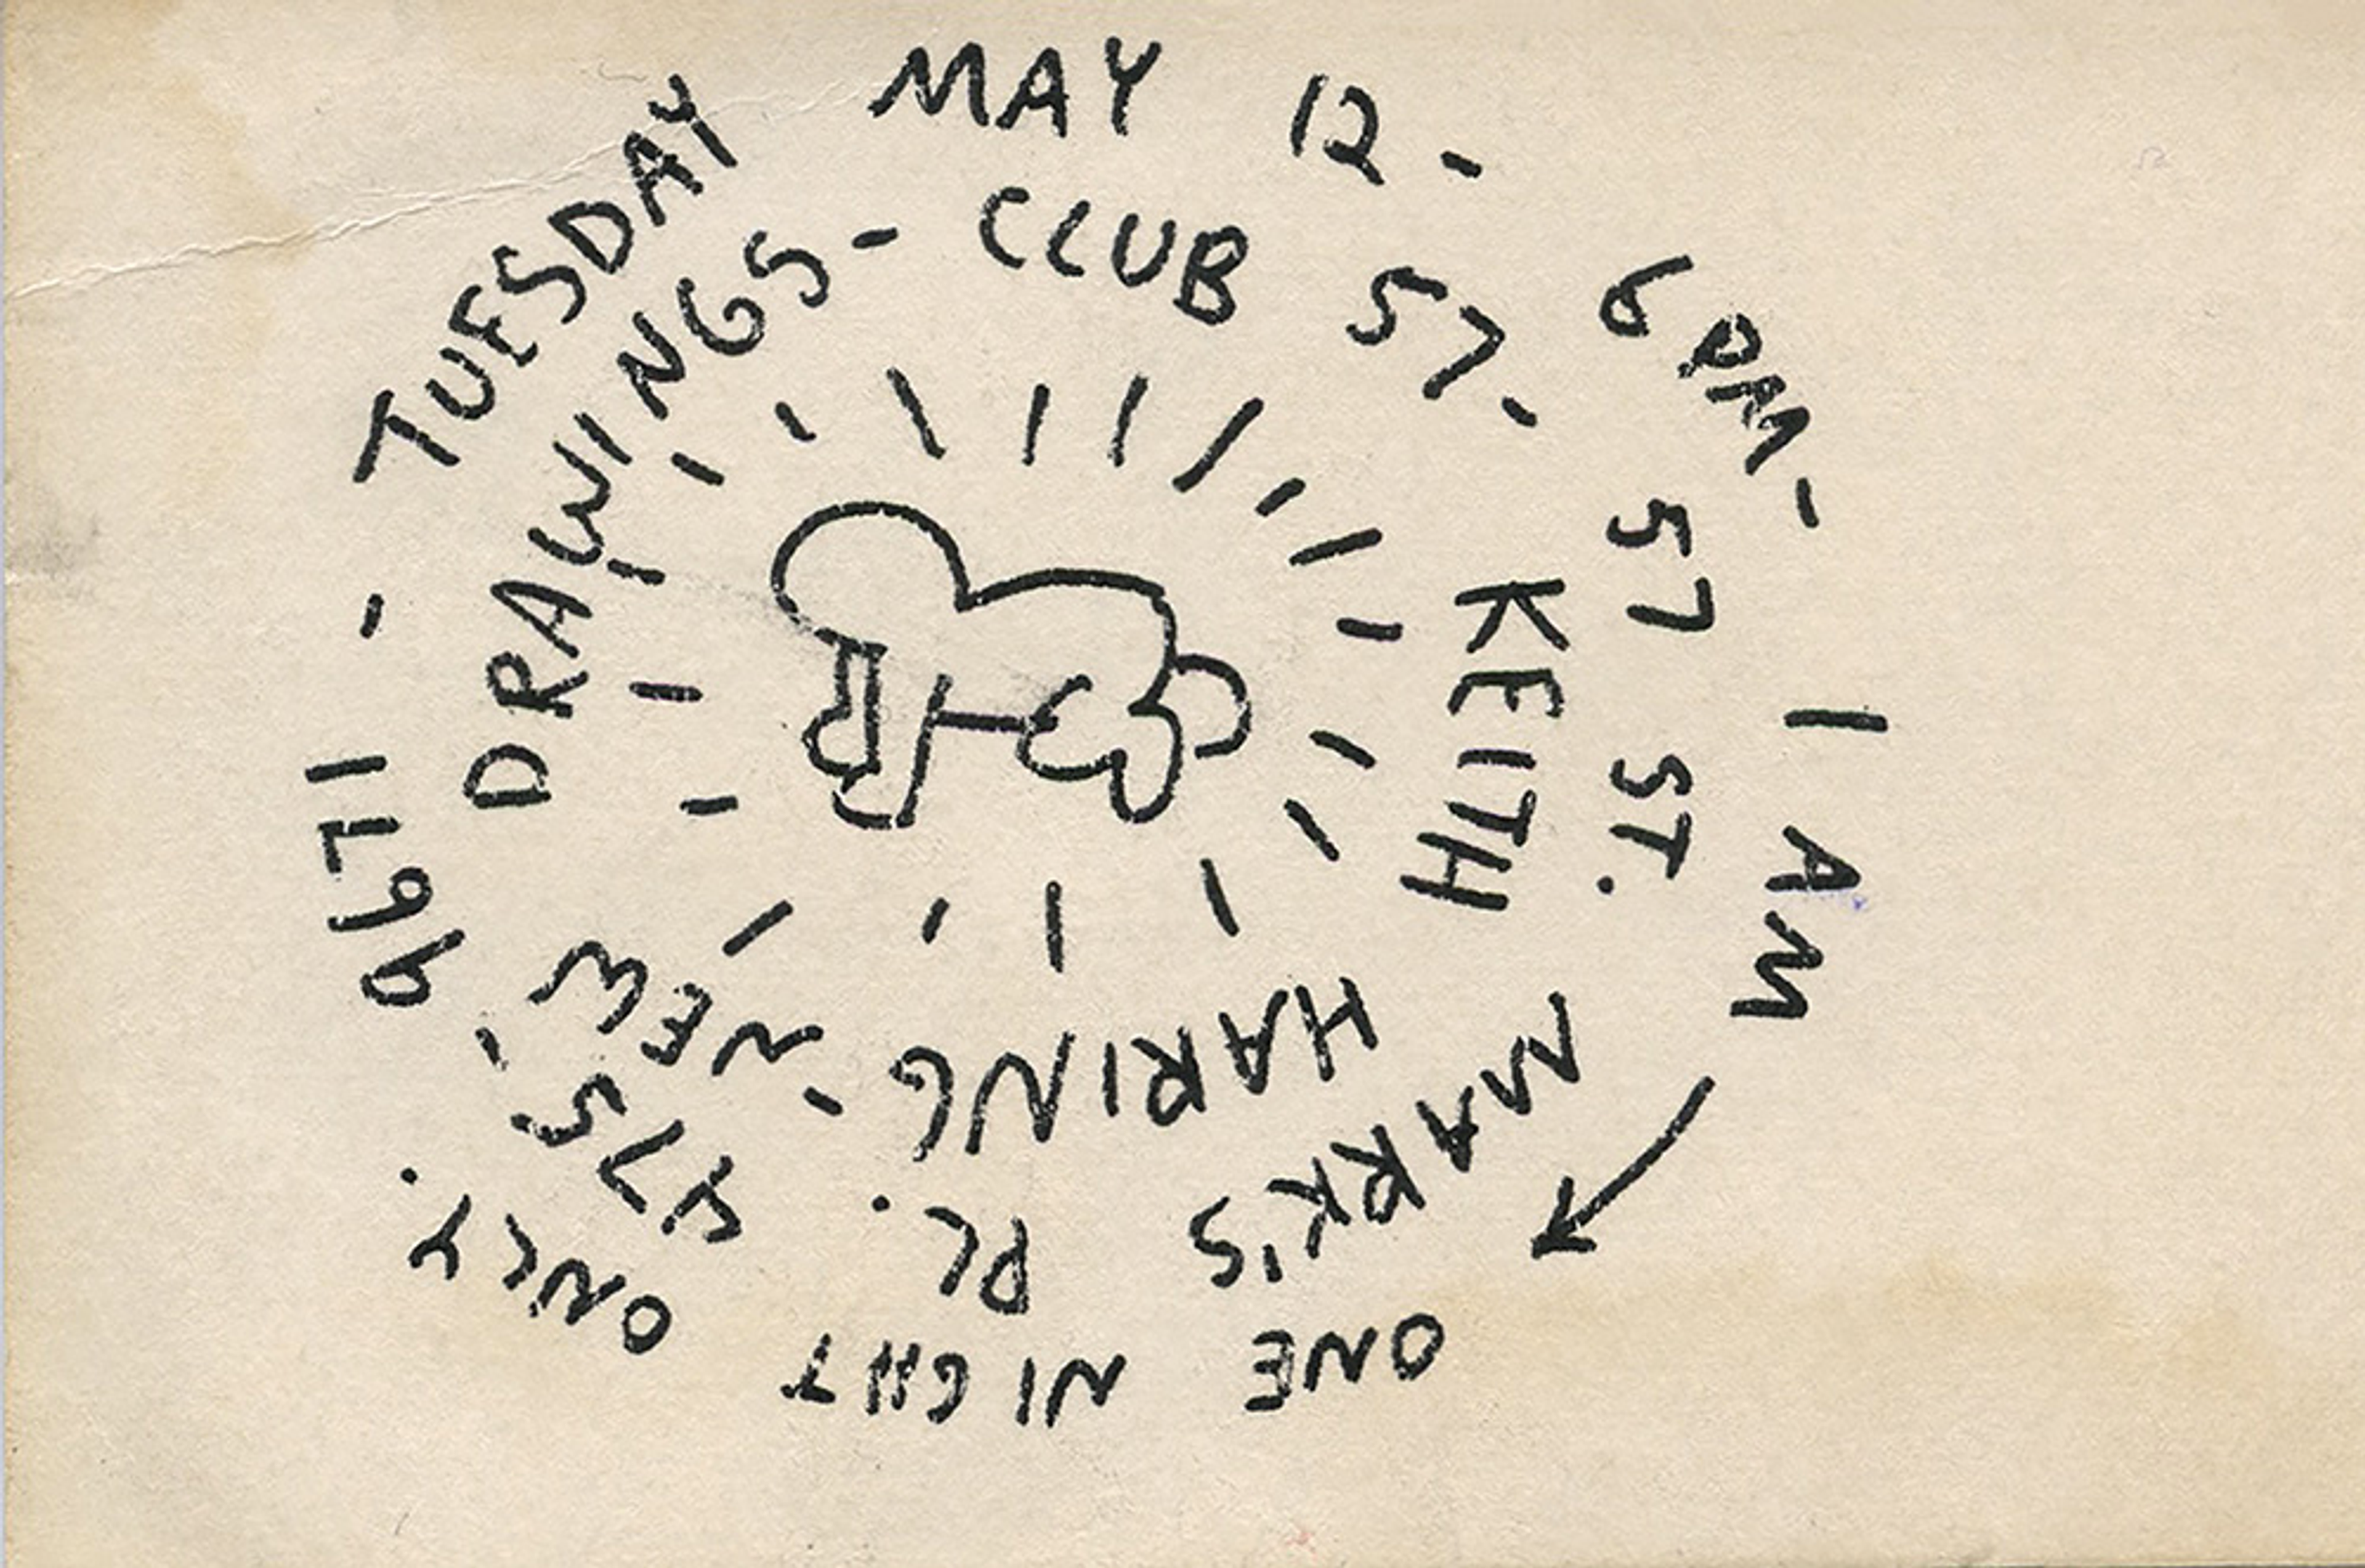 KEITH HARING - NEW DRAWINGS - CLUB 57 -
57 ST. MARK'S PL. 475-9671 - TUESDAY MAY 12 - 6PM - 1 AM
ONE NIGHT ONLY.